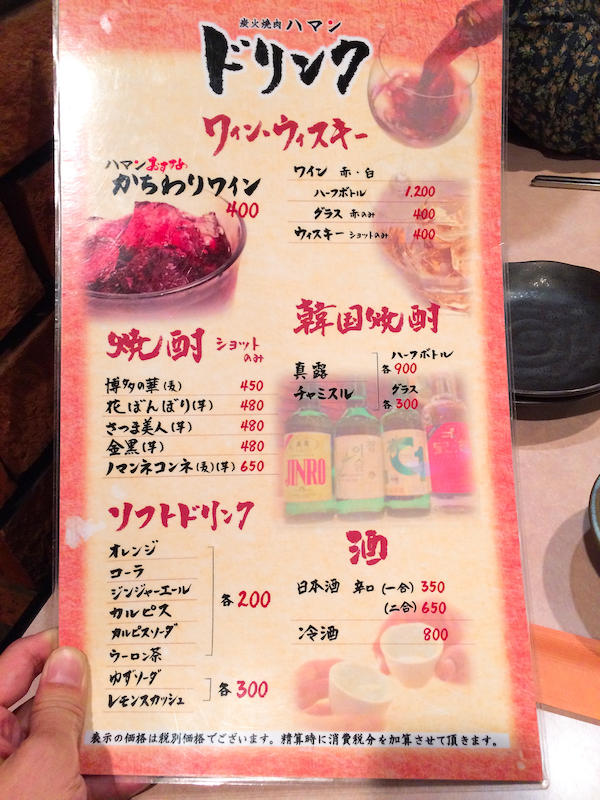 炭火焼肉ハマン
ドリンク
ワイン・ウィスキー
ハマンおすすめ
かちわりワイン
400
ワイン 赤・白
ハーフボトル 1,200
グラス 赤のみ 400
ウィスキー ショットのみ 400
焼酎 ショットのみ
博多の華(麦) 450
花ぼんぼり(芋) 480
さつま美人(芋) 480
金黒(芋) 480
ノマンネコンネ(麦)(芋) 650
韓国焼酎
真露
チャミスル
ハーフボトル
各900
グラス
各300
JINRO
ソフトドリンク
オレンジ
コーラ
ジンジャーエール
カルピス
カルピスソーダ
ウーロン茶
各200
ゆずソーダ
レモンスカッシュ
各300
酒
日本酒 辛口 (一合) 350
(二合) 650
冷酒 800
表示の価格は税別価格でございます。精算時に消費税分を加算させて頂きます。